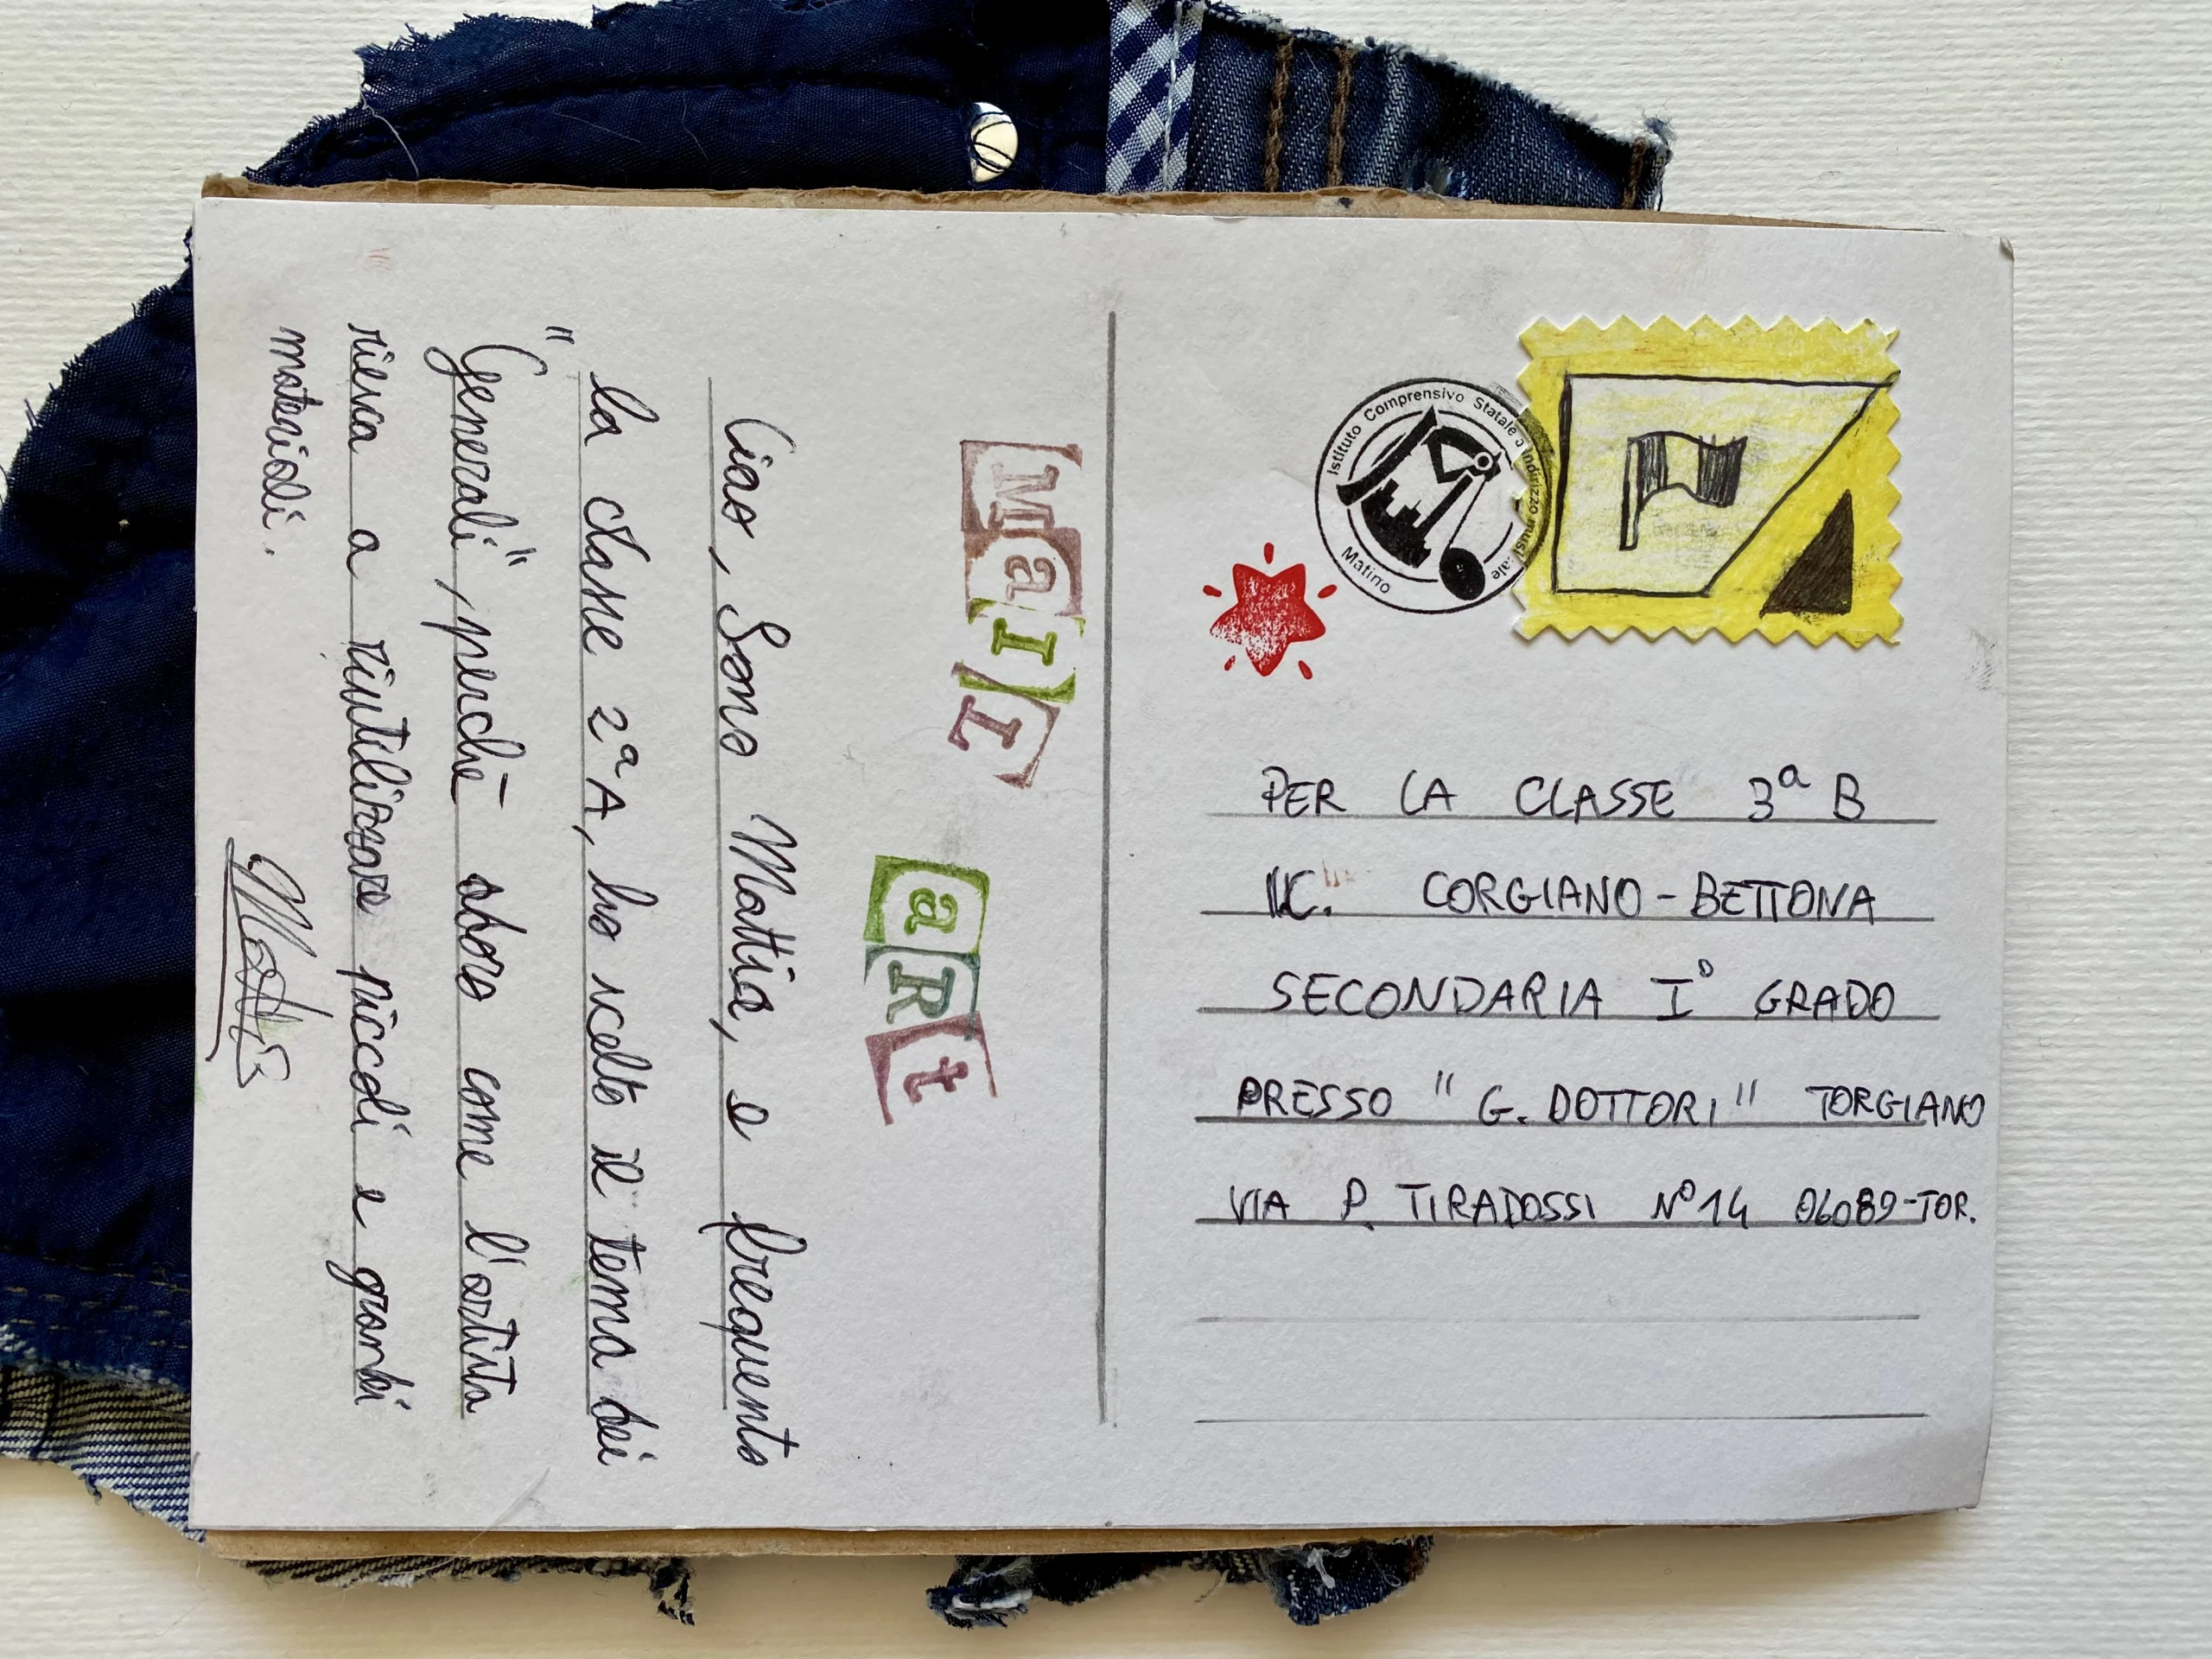 MaIL
aRt
Ciao, Sono Mattia, e frequento
la classe 2ª A, ho scelto il tema dei
"Generali", perchè abora come l'artista
riesca a riutilizzare piccoli e grandi
materiali.
Mattia
Istituto Comprensivo Statale a Indirizzo musicale
Matino
PER LA CLASSE 3ª B
I.C. CORGIANO-BETTONA
SECONDARIA I° GRADO
PRESSO "G. DOTTORI" TORGIANO
VIA P. TIRADOSSI N°14 06089-TOR.